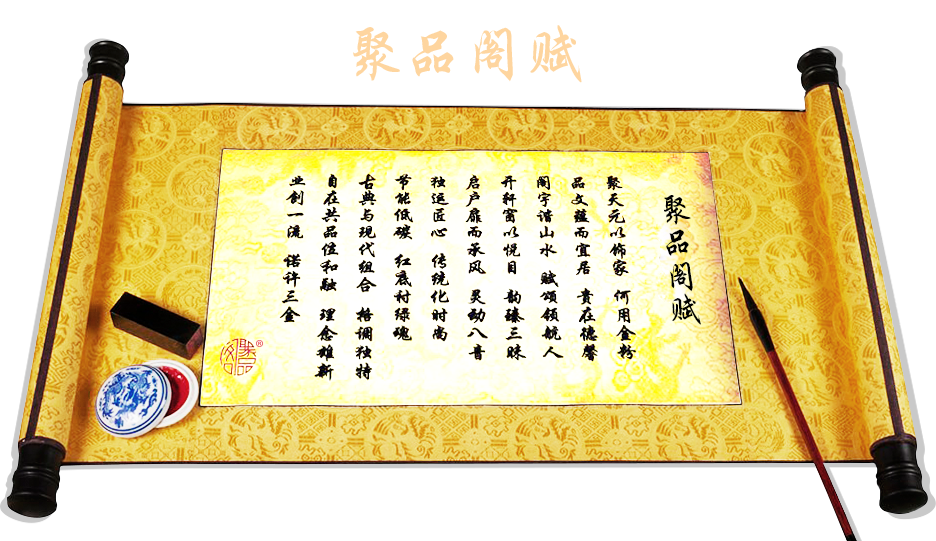 聚品阁赋
聚品阁赋
聚天元以饰家 何用金粉
品文蕴而宜居 贵在德馨
阁宇谐山水 赋颂领航人
开轩窗以悦目 韵臻三昧
启户扉而承风 灵动八音
独运匠心 传统化时尚
节能低碳 红底衬绿魂
古典与现代组合 格调独特
自在共品位和融 理念雄新
业创一流 诺许三金
聚品
®